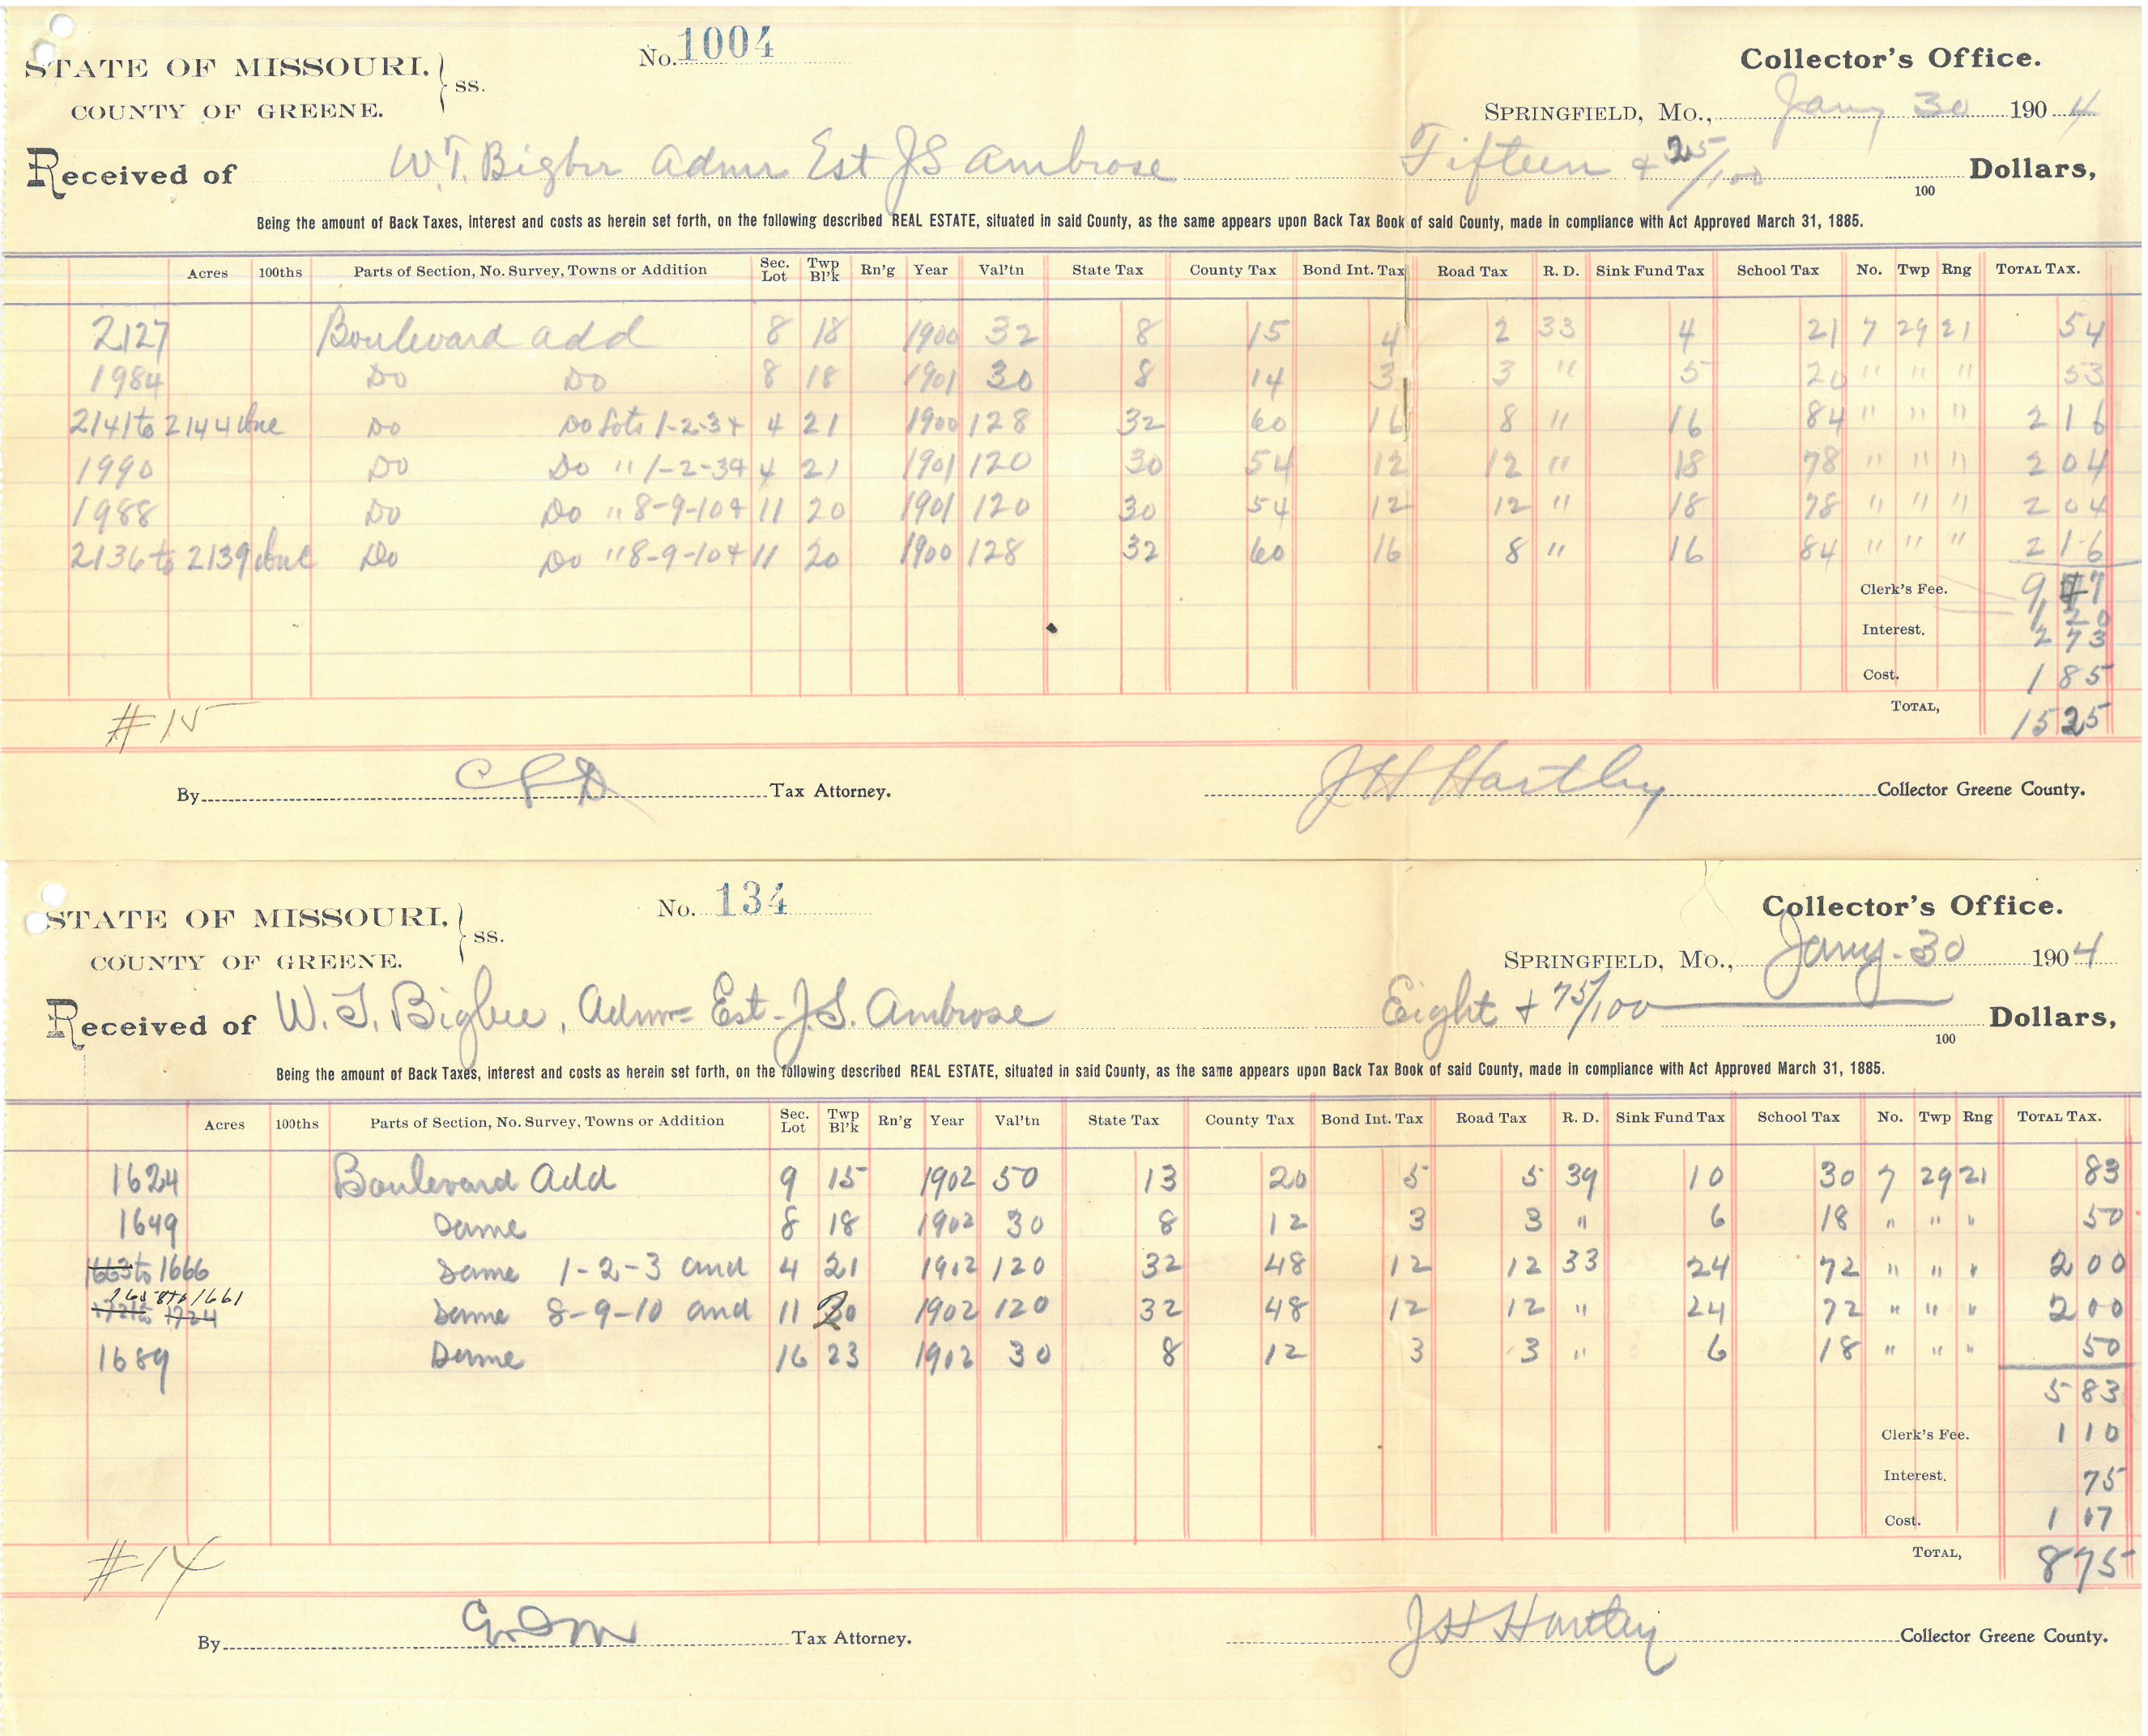 No. 1004
STATE OF MISSOURI, } ss. Collector's Office.
COUNTY OF GREENE. SPRINGFIELD, MO., Jany 30 1904
Received of W.T. Bigbee Admr Est JS Ambrose Fifteen + 25/100 100 Dollars,
Being the amount of Back Taxes, interest and costs as herein set forth, on the following described REAL ESTATE, situated in said County, as the same appears upon Back Tax Book of said County, made in compliance with Act Approved March 31, 1885.
Acres 100ths Parts of Section, No. Survey, Towns or Addition Sec. Lot Twp Bl'k Rn'g Year Val'tn State Tax County Tax Bond Int. Tax Road Tax R. D. Sink Fund Tax School Tax No. Twp Rng TOTAL TAX.
2127 Boulevard add 8 18 1900 32 8 15 4 2 33 4 21 7 29 21 54
1984 Do Do 8 18 1901 30 8 14 3 3 " 5 20 " " " 53
2141 to 2144 Inc Do Do Lots 1-2-3+ 4 21 1900 128 32 60 16 8 " 16 84 " " " 2 16
1990 Do Do " 1-2-3+ 4 21 1901 120 30 54 12 12 " 18 78 " " " 2 04
1988 Do Do " 8-9-10+ 11 20 1901 120 30 54 12 12 " 18 78 " " " 2 04
2136 to 2139 Inc Do Do " 8-9-10+ 11 20 1900 128 32 60 16 8 " 16 84 " " " 2 16
Clerk's Fee. 9 47
1 20
Interest. 2 73
Cost. 1 85
TOTAL, 15 25
#15
By CLD Tax Attorney. JH Hartley Collector Greene County.
No. 134
STATE OF MISSOURI, } ss. Collector's Office.
COUNTY OF GREENE. SPRINGFIELD, MO., Jany. 30 1904
Received of W. T. Bigbee, Admr Est. J.S. Ambrose Eight + 75/100 100 Dollars,
Being the amount of Back Taxes, interest and costs as herein set forth, on the following described REAL ESTATE, situated in said County, as the same appears upon Back Tax Book of said County, made in compliance with Act Approved March 31, 1885.
Acres 100ths Parts of Section, No. Survey, Towns or Addition Sec. Lot Twp Bl'k Rn'g Year Val'tn State Tax County Tax Bond Int. Tax Road Tax R. D. Sink Fund Tax School Tax No. Twp Rng TOTAL TAX.
1624 Boulevard Add 9 15 1902 50 13 20 5 5 39 10 30 7 29 21 83
1649 Same 8 18 1902 30 8 12 3 3 " 6 18 " " " 50
1663 to 1666 Same 1-2-3 and 4 21 1902 120 32 48 12 12 33 24 72 " " " 2 00
1658 to 1661
1721 to 1724 Same 8-9-10 and 11 20 1902 120 32 48 12 12 " 24 72 " " " 2 00
1689 Same 16 23 1902 30 8 12 3 3 " 6 18 " " " 50
5 83
Clerk's Fee. 1 10
Interest. 75
Cost. 1 07
TOTAL, 8 75
#14
By Tax Attorney. JH Hartley Collector Greene County.